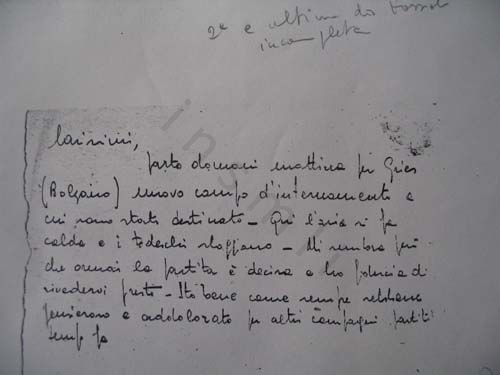 2ª e ultima da Fossoli
incompleta
Carissimi,
parto domani mattina per Gries
(Bolzano) nuovo campo d'internamento a
cui sono stato destinato - Qui l'aria si fa
calda e i tedeschi sloggiano - Mi sembra però
che oramai la partita è decisa e ho fiducia di
rivedervi presto - Sto bene come sempre sebbene
pensieroso e addolorato per altri compagni partiti
tempo fa